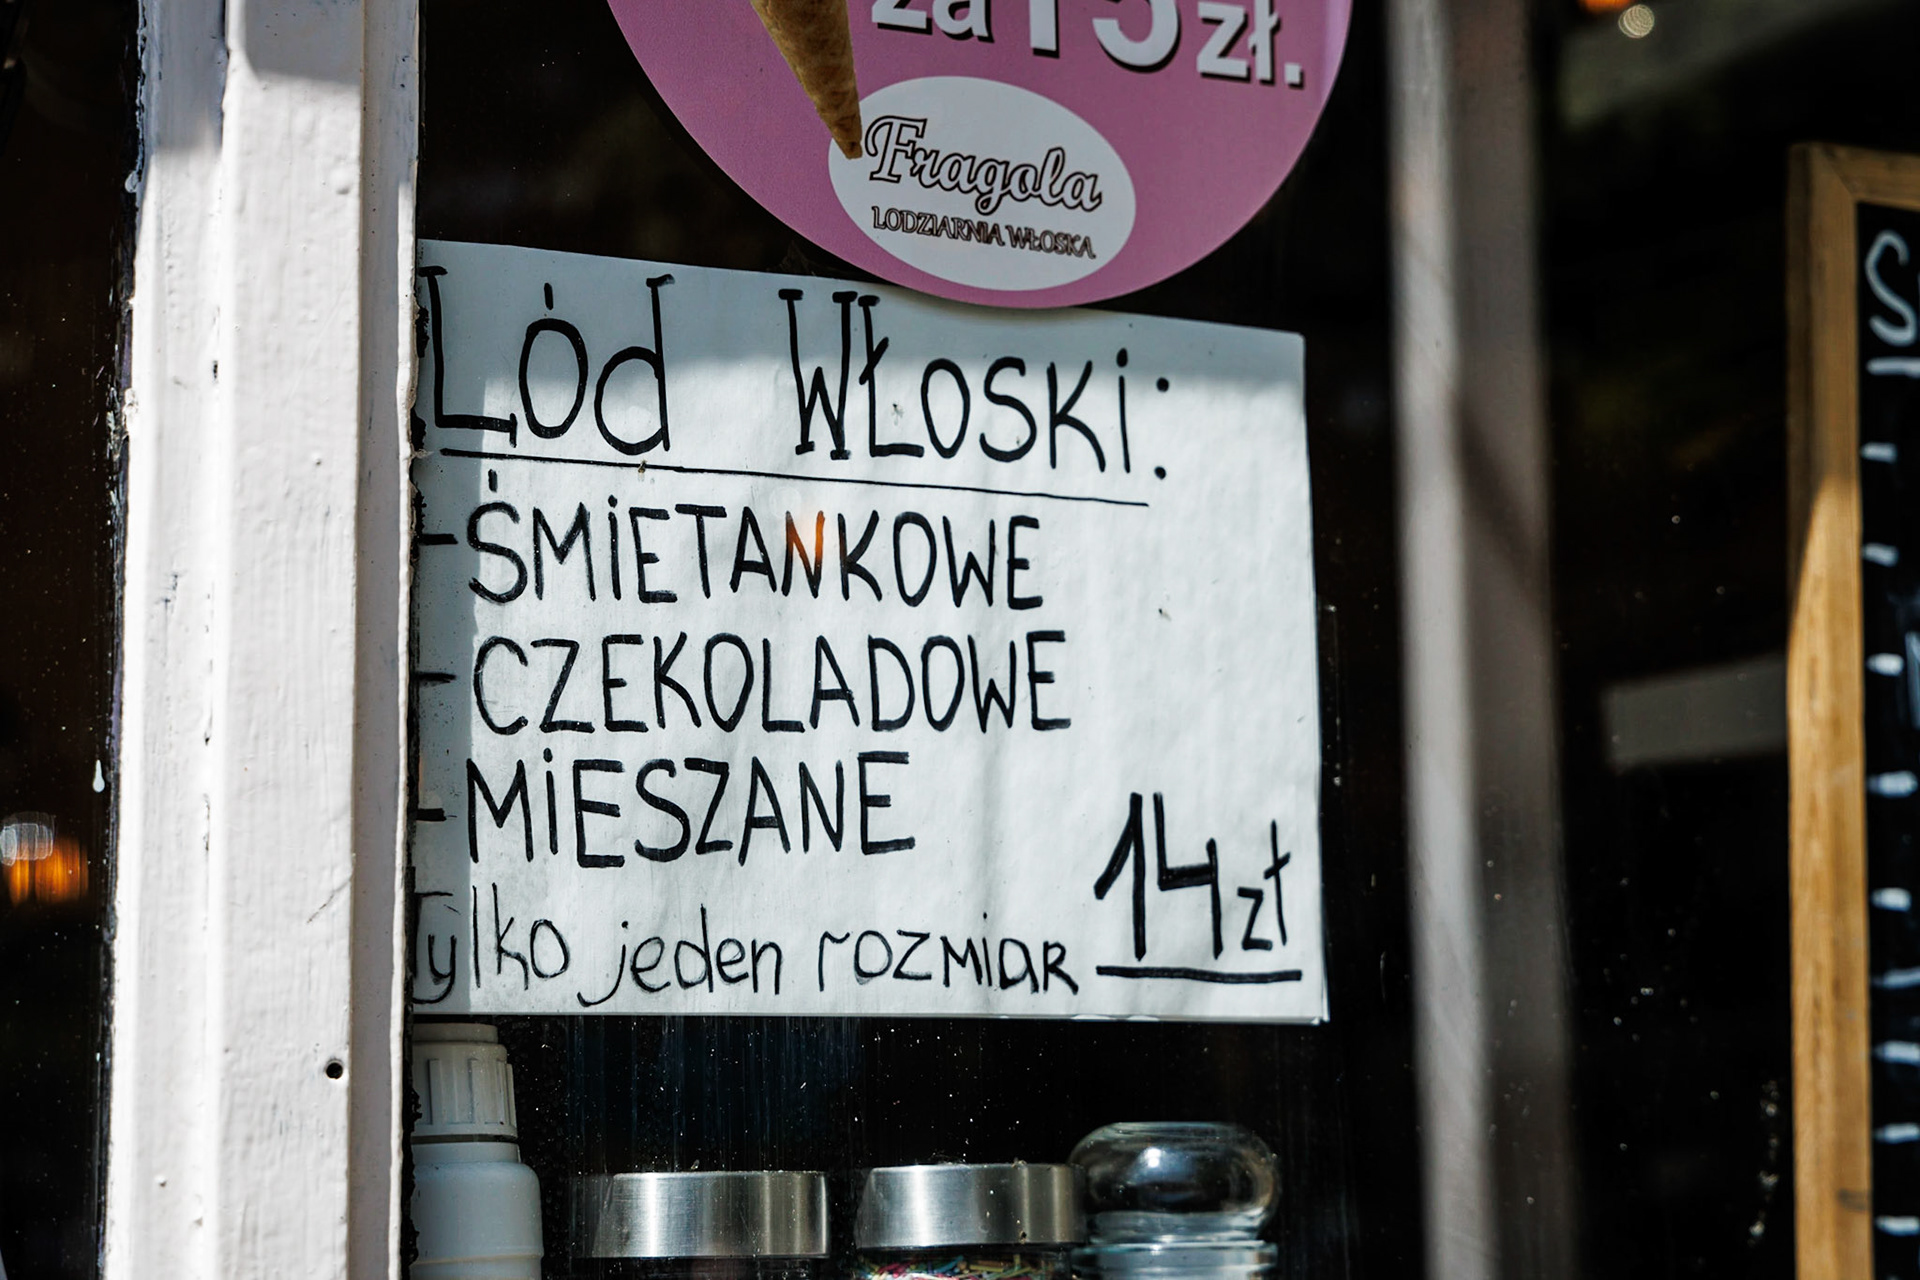 za 15 zł.
Fragola
LODZIARNIA WŁOSKA
Lód Włoski:
- ŚMIETANKOWE
- CZEKOLADOWE
- MIESZANE
Tylko jeden rozmiar 14 zł